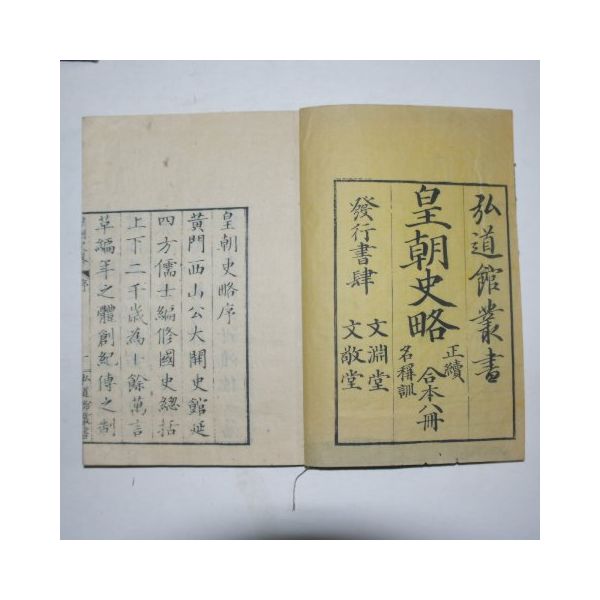 弘道館叢書
皇朝史略
正續
名稱訓
合本八冊
發行書肆
文淵堂
文敬堂
皇朝史略序
黃門西山公大開史館延
四方儒士編修國史總括
上下二千歲為十餘萬言
革編年之體創紀傳之制
序
弘道館叢書